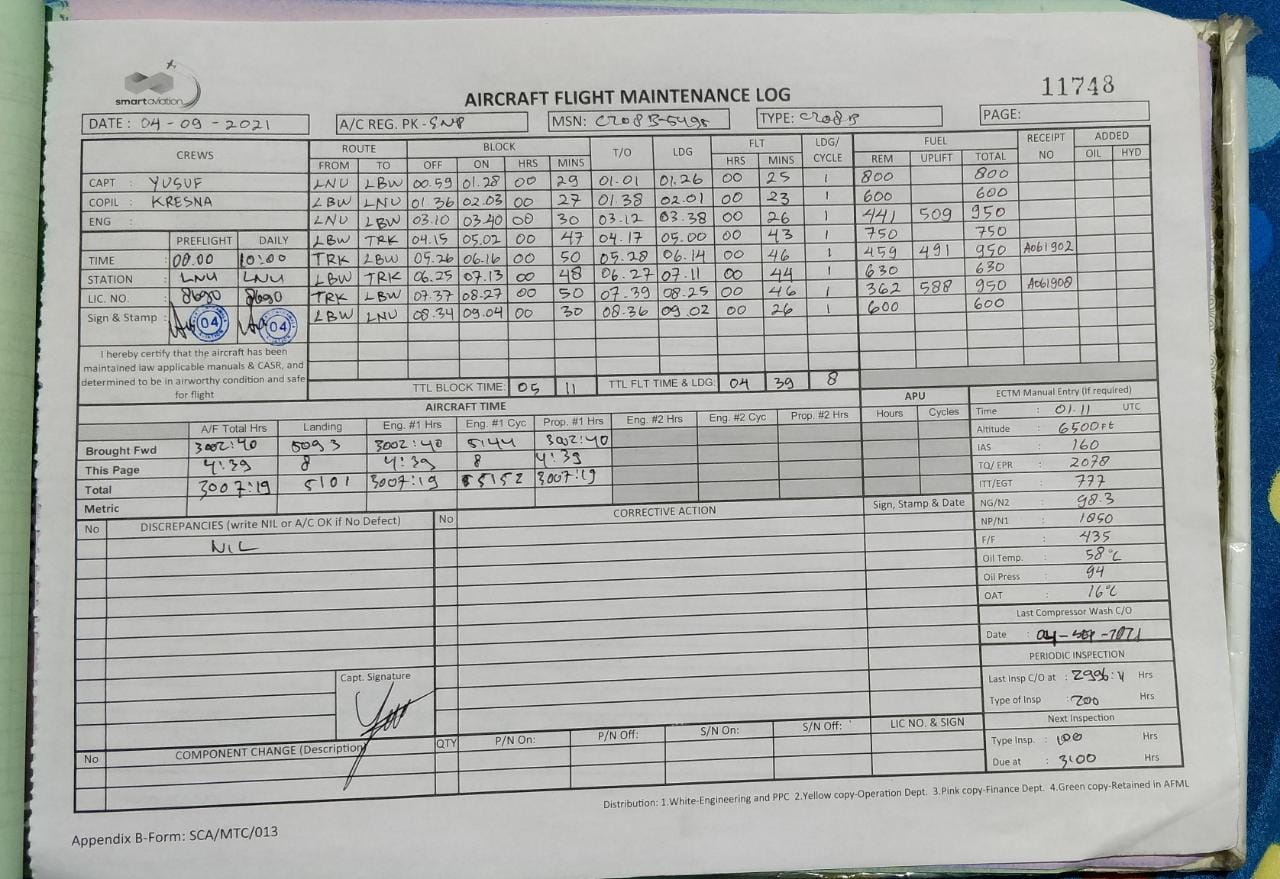 smartaviation
11748
AIRCRAFT FLIGHT MAINTENANCE LOG
DATE : 04 - 09 - 2021 A/C REG. PK - SNP MSN: C208B-5495 TYPE: C208B PAGE:
CREWS ROUTE BLOCK T/O LDG FLT LDG/CYCLE FUEL RECEIPT NO ADDED
FROM TO OFF ON HRS MINS HRS MINS REM UPLIFT TOTAL OIL HYD
CAPT : YUSUF LNU LBW 00.59 01.28 00 29 01.01 01.26 00 25 1 800 800
COPIL : KRESNA LBW LNU 01.36 02.03 00 27 01.38 02.01 00 23 1 600 600
ENG : LNU LBW 03.10 03.40 00 30 03.12 03.38 00 26 1 441 509 950
PREFLIGHT DAILY LBW TRK 04.15 05.02 47 04.17 05.00 00 43 1 750 750
TIME : 00.00 10:00 TRK LBW 05.26 06.16 00 50 05.28 06.14 00 46 1 459 491 950 A061902
STATION : LNU LNU LBW TRK 06.25 07.13 00 48 06.27 07.11 00 44 1 630 630
LIC. NO. : 8690 8690 TRK LBW 07.37 08.27 00 50 07.39 08.25 00 46 1 362 588 950 A061908
Sign & Stamp : 04 04 LBW LNU 08.34 09.04 00 30 08.36 09.02 00 26 1 600 600
I hereby certify that the aircraft has been
maintained iaw applicable manuals & CASR, and
determined to be in airworthy condition and safe
for flight
TTL BLOCK TIME: 05 11 TTL FLT TIME & LDG: 04 39 8
AIRCRAFT TIME APU ECTM Manual Entry (if required)
A/F Total Hrs Landing Eng. #1 Hrs Eng. #1 Cyc Prop. #1 Hrs Eng. #2 Hrs Eng. #2 Cyc Prop. #2 Hrs Hours Cycles
Brought Fwd 3002:40 5093 3002:40 5144 3002:40
This Page 4:39 8 4:39 8 4:39
Total 3007:19 5101 3007:19 5152 3007:19
Metric
Time : 01.11 UTC
Altitude : 6500 ft
IAS : 160
TQ/ EPR : 2078
ITT/EGT : 777
NG/N2 : 98.3
NP/N1 : 1850
F/F : 435
Oil Temp. : 58°C
Oil Press : 94
OAT : 16°C
Last Compressor Wash C/O
Date : 04-SEP-2021
PERIODIC INSPECTION
Last Insp C/O at : Hrs
Type of Insp : 200 Hrs
Next Inspection
Type Insp. : 100 Hrs
Due at : 3100 Hrs
No DISCREPANCIES (write NIL or A/C OK if No Defect) No CORRECTIVE ACTION Sign, Stamp & Date
NIL
Capt. Signature
No COMPONENT CHANGE (Description) QTY P/N On: P/N Off: S/N On: S/N Off: LIC NO. & SIGN
Distribution: 1.White-Engineering and PPC 2.Yellow copy-Operation Dept. 3.Pink copy-Finance Dept. 4.Green copy-Retained in AFML
Appendix B-Form: SCA/MTC/013